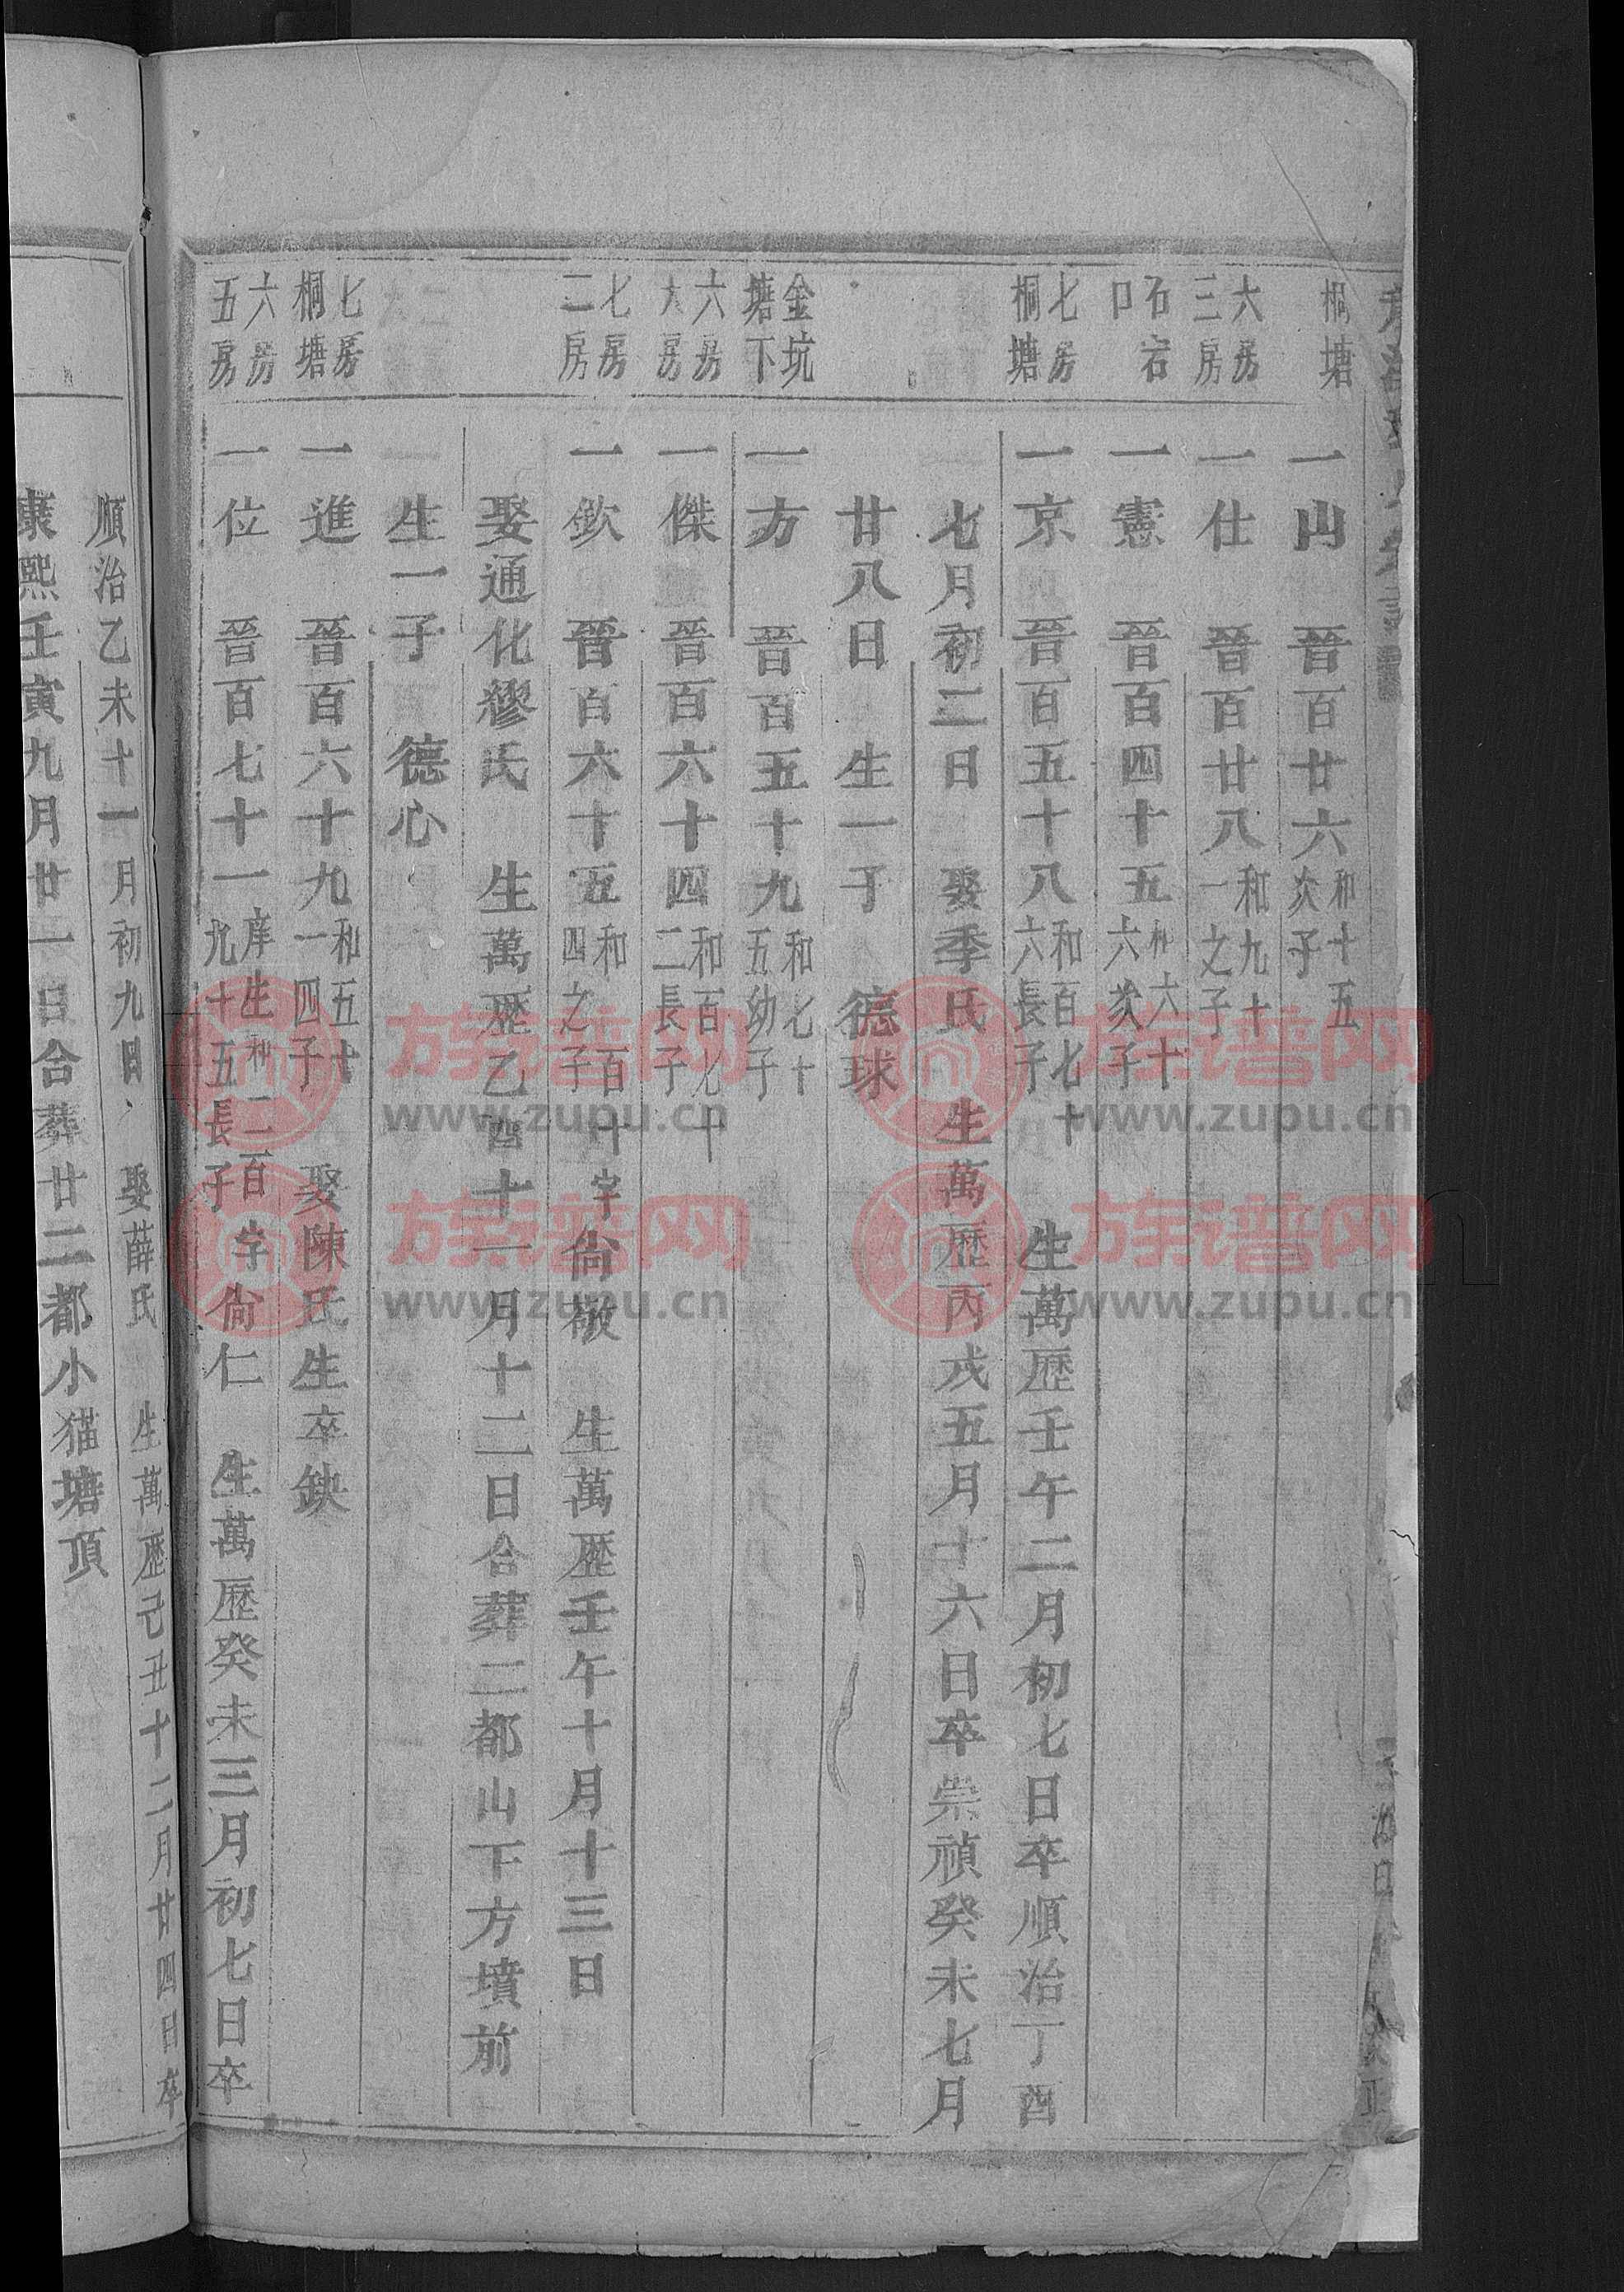 桐塘
一山 晉百廿六 和十五次子
六房三房
一仕 晉百廿八 和九十一之子
石岩口
一憲 晉百四十五 和六十六次子
七房桐塘
一京 晉百五十八 和百七十六長子 生萬歷壬午二月初七日卒順治丁酉
七月初二日 娶季氏 生萬歷丙戌五月十六日卒崇禎癸未七月
廿八日 生一子 德球
金坑塘下
一方 晉百五十九 和七十五幼子
六房大房
一傑 晉百六十四 和百七十二長子
七房二房
一欽 晉百六十五 和百十四之子 字尙敬 生萬歷壬午十月十三日
娶通化繆氏 生萬歷乙酉十一月十二日合葬二都山下方墳前
生一子 德心
七房桐塘
一進 晉百六十九 和五十一四子 娶陳氏生卒缺
六房五房
一位 晉百七十一 庠生和二百九十五長子 字尙仁 生萬歷癸未三月初七日卒
順治乙未十一月初九日 娶薛氏 生萬歷己丑十二月廿四日卒
康熙壬寅九月廿一日合葬廿二都小猫塘頂
族谱网
www.zupu.cn
族谱网
www.zupu.cn
族谱网
www.zupu.cn
族谱网
www.zupu.cn